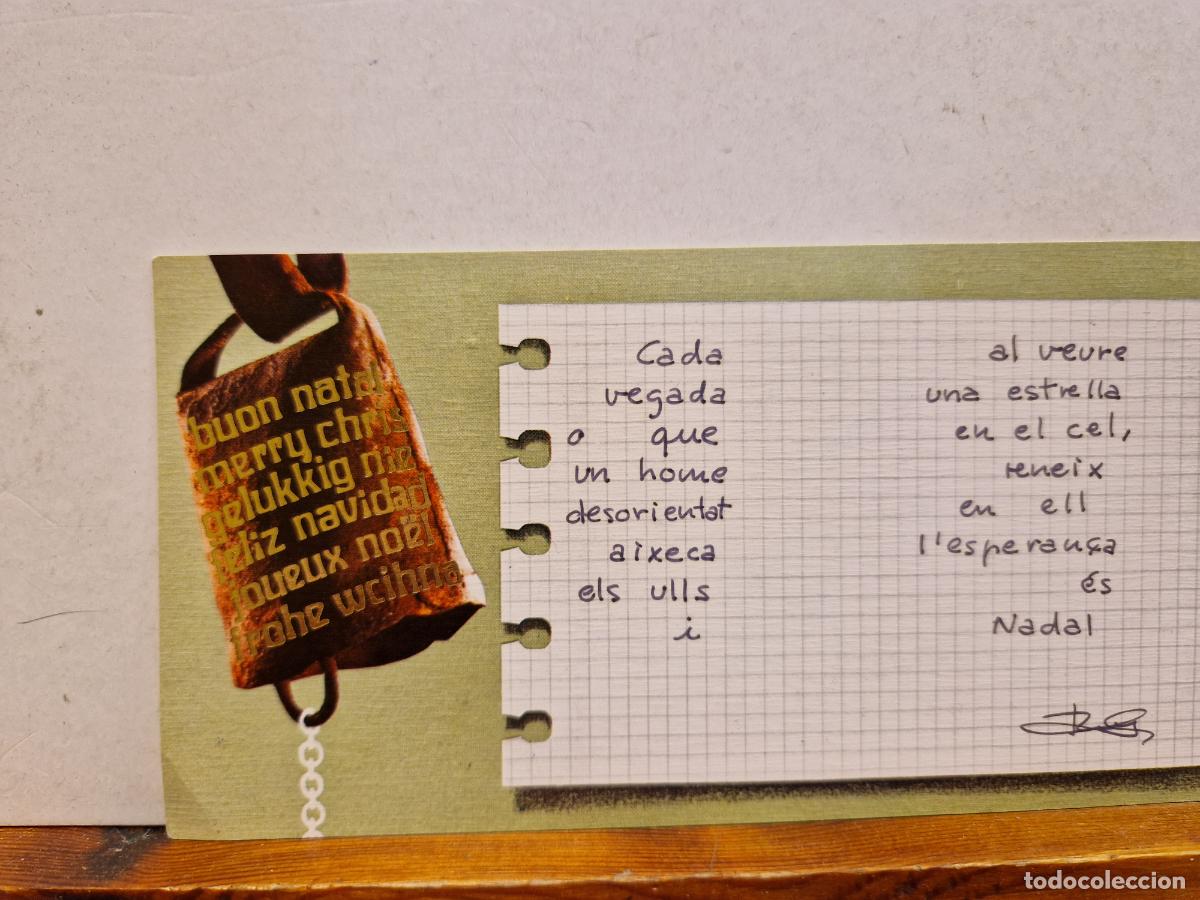 buon natal
merry chris
gelukkig nie
feliz navidad
joueux noël
frohe wcihna
Cada
vegada
o que
un home
desorientat
aixeca
els ulls
i
al veure
una estrella
en el cel,
reneix
en ell
l'esperança
és
Nadal
todocoleccion